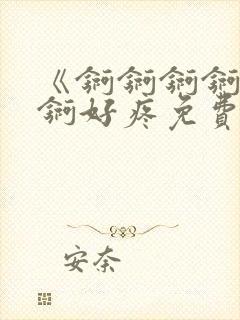 《锕锕锕锕
锕好疼免費
安奈